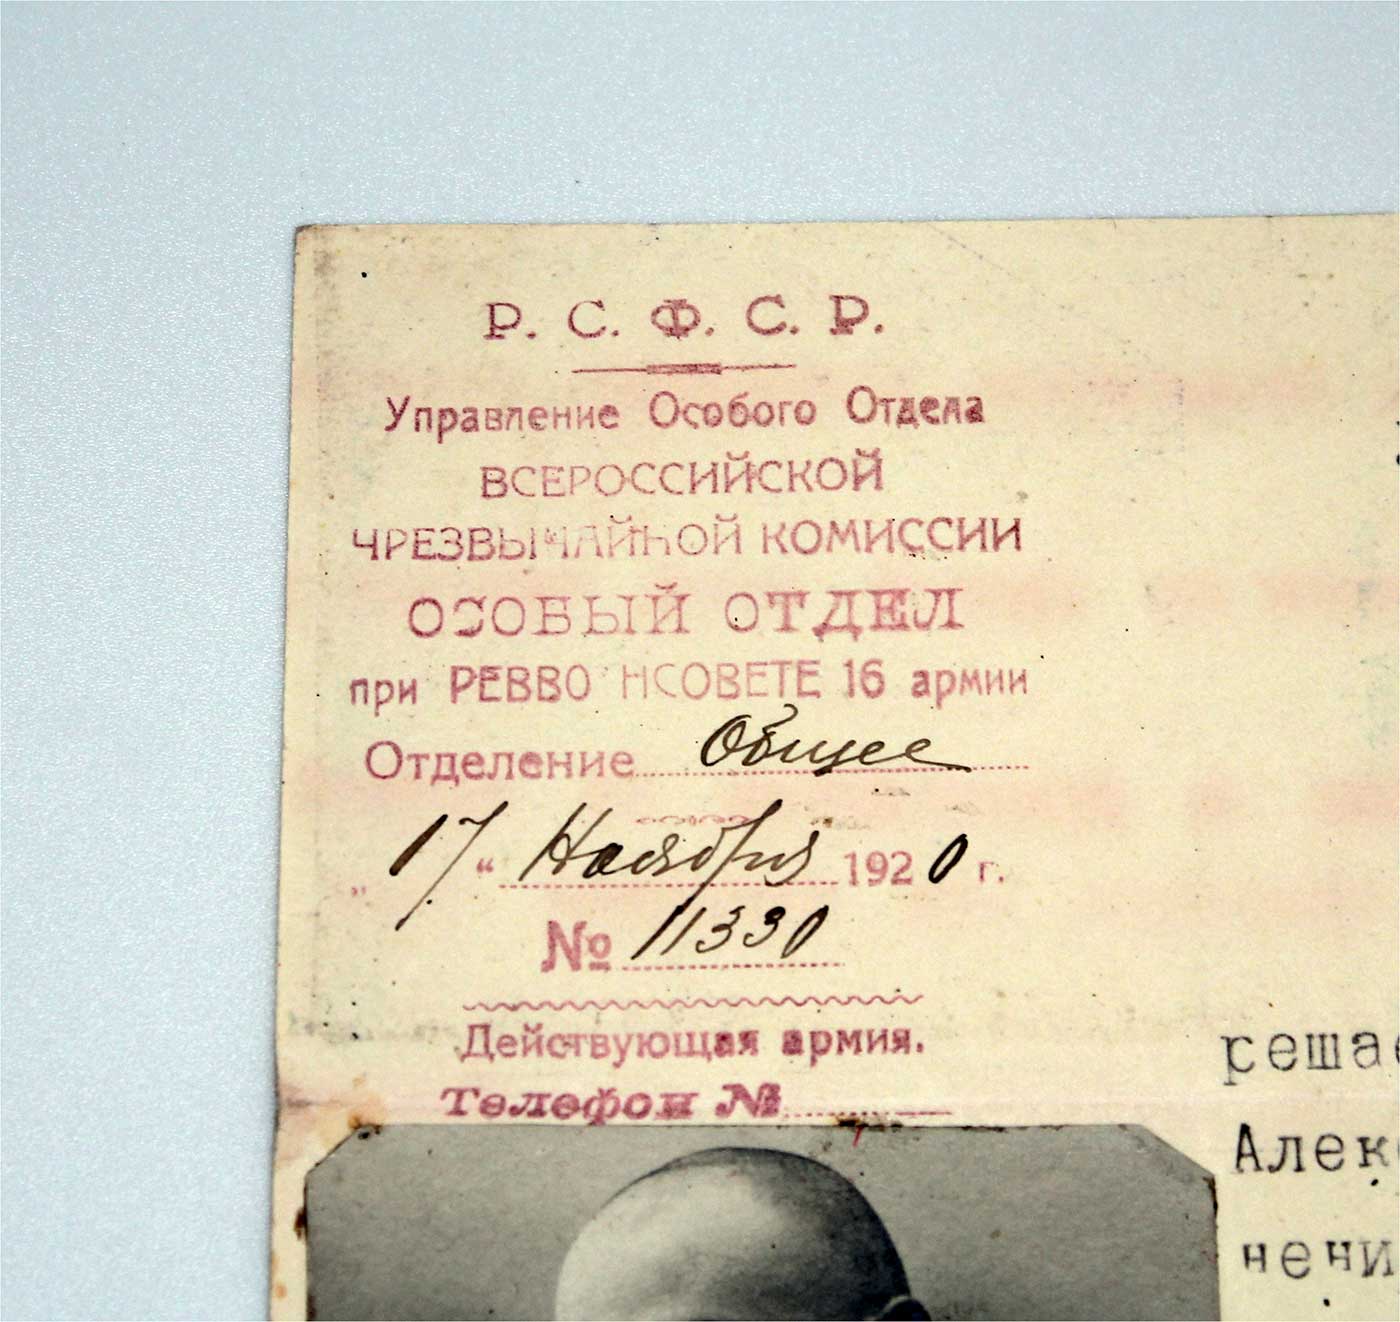 Р. С. Ф. С. Р.
Управление Особого Отдела
ВСЕРОССИЙСКОЙ
ЧРЕЗВЫЧАЙНОЙ КОМИССИИ
ОСОБЫЙ ОТДЕЛ
при РЕВВОЕНСОВЕТЕ 16 армии
Отделение Общее
„ 17 “ Ноября 1920 г.
№ 11330
Действующая армия.
Телефон №
решае
Алек
нени